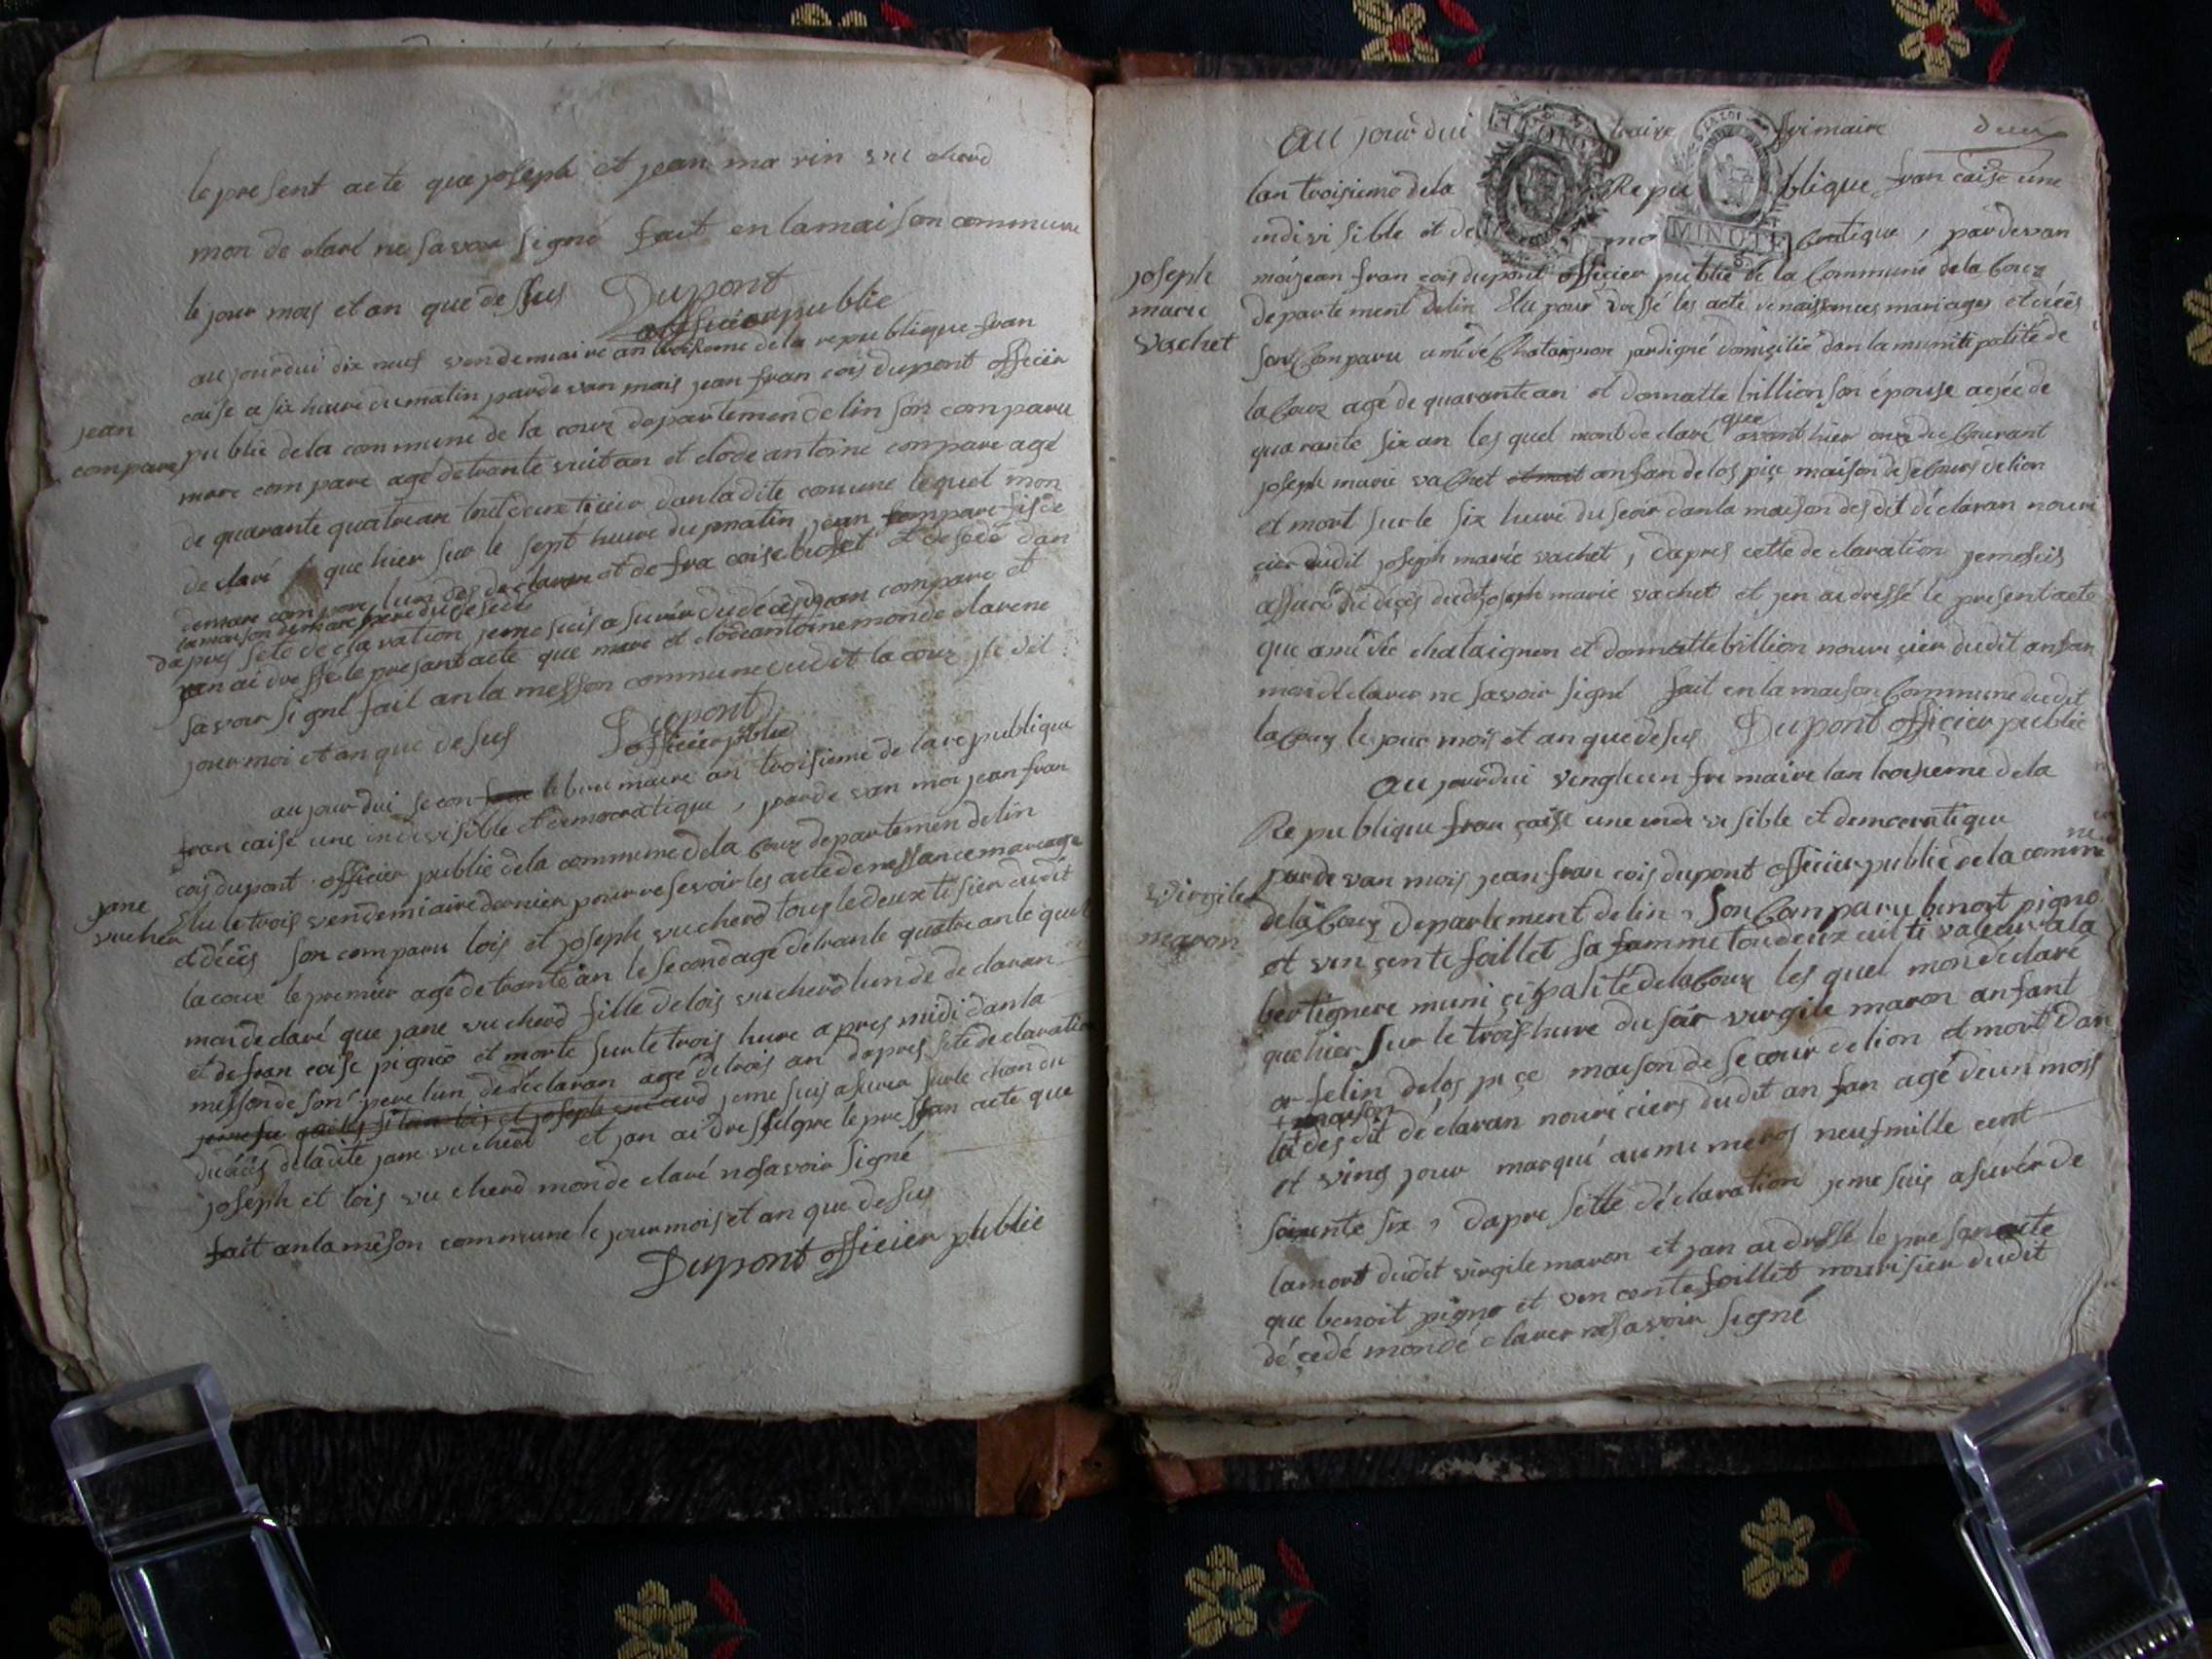 le present acte que joseph et jean marin vu cherd
mon de claré ne savoir signé fait en lamaison commune
le jour mois et an que de ssus Dupont
officier publie
aujourdui dix neuf vendemiaire an troiseme dela republique fran
caise a six heure du matin parde van mois jean fran cois dupont officier
jean
compare
publie dela commune de la coux departemen delin son comparu
marc compare agé detrante vuit an et clode antoine compare agé
de quarante quatrean tout deux ticier danladite comune lequel mon
de claré que hier sur le sept hure du matin jean compare fis de
demarc compare lun des declaran et de fra coise buset et desede dan
lamaison demarc pere du desede
dapres sete de cla ration jeme suis a surér dudécès jean compare et
jan ai dre ssé le presant acte que marc et clode antoine monde clarene
savoir signé fait anla messon commune dudit la coux le dit
jour moi et an que de sus Dupont
officier publie
aujourdui secon le bru maire an troisieme de lare publique
fran caise une indevisible et democratique, parde van moi jean fran
cois dupont officier publie dela commune dela Coux departemen delin
jane
vucher
Elu le trois vendemiaire dernier pour re sevoir les acte de nessance mareage
et décès son comparu lois et joseph vucherd tous le deux tisier dudit
lacoux le premier agé de trante an le second agé detrante quatre an le quel
mon de claré que jane vu cherd fille delois vucherd lun de de claran
et de fran coise pignéo et morte sur le trois hure a pres midi danla
messon de son pere lun de déclaran agé de trois an dapres sete declaration
jeme suis asurer sur le chan du
du décès deladite jane vucherd et jan ai dressé le pre san acte que
joseph et lois vu cherd mon de claré ne savoir signé
fait anla meson commune le jour mois et an que de sus
Dupont officier publie
Au jour dui traize frimaire deux
lan troisieme dela Repu blique fran caise une
indivi sible et de mo cratique, pardevan
joseph
marie
vachet
moi jean fran cois dupont officier publie de la Commune dela Coux
departement delin Elu pour les acte denaissances mariages et décès
son Comparu amédé Chataignon jardigné domicilié dan la munisipalité de
la Coux agé de quarante an et donnatte billion son épouse agée de
quarante six an les quel mont de claré que avant hier onze du Courant
joseph marie vachet anfan delos pice maison de se Cours delion
et mort sur le six hure du seoir danla maison des dit déclaran nouri
cier dudit joseph marie vachet, dapres cette de claration jeme suis
assuré du décès dudit joseph marie vachet et jen ai dressé le present acte
que amédée chataignon et donnatte billion nouri cier dudit anfan
mon déclarer ne savoir signé fait en la maison Commune dudit
la Coux le jour mois et an que de sus Dupont officier publie
Au jourdui vingt un fri maire lan troisième dela
Re publique fran çaise une inde vi sible et democratique
parde van mois jean fran cois dupont officier publie dela commune
Virgile
maron
dela Coux departement delin, Son Comparu benoit pigno
et vin çente foillet sa famme tou deux culti valeur a la
bertignere muni çipalité dela Coux les quel mon déclaré
que hier sur le trois hure du soir virgile maron anfant
orfelin delos pi çe maison de se cour delion et mort dan
maison
la des dit déclaran nouri ciers dudit an fan agé deun mois
et vins jour marqué au nu meros neuf mille cent
soixente six, dapre sette déclaration jeme suis a surér de
lamort dudit virgile maron et jan ai dressé le presan acte
que benoit pigno et vin cente foillet nourisier dudit
dé çedé mon dé clarer ne savoir signé